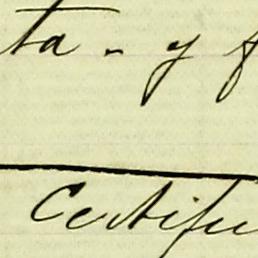 ta - y f
Certifi